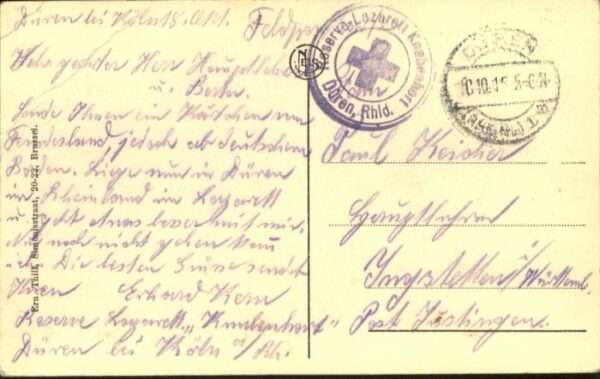 Düren bei Köln 18. Okt.
Feldpost
Sehr geehrter Herr Hauptlehrer
u.
Sende Ihnen ein Kärtchen von
Feindesland, jedoch ab deutschem
Boden. Liege nun in Düren
im Rheinland im Lazarett
u. geht etwas besser mit mir,
nur noch nicht gehen kann
ich. Die besten Grüsse sendet
Ihnen Erhard Kern
Reserve Lazarett „Knabenhort"
Düren bei Köln a/Rh.
Reserve-Lazarett Knabenhort
Düren, Rhld.
DÜREN
5-6 N
Ern. Thill, Bruxel.
NELS
Herrn
Paul Keicher
Hauptlehrer
Ingstetten / Württemb.
Post Justingen.